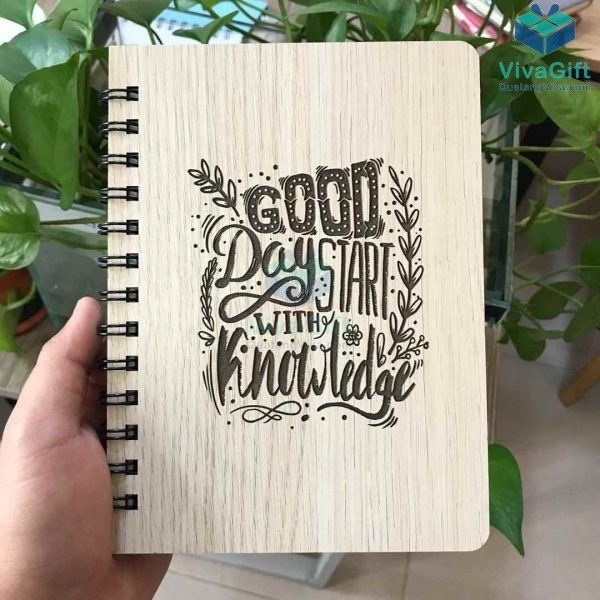 VivaGift
Quatangviva.com
GOOD
Day START
WITH
Knowledge